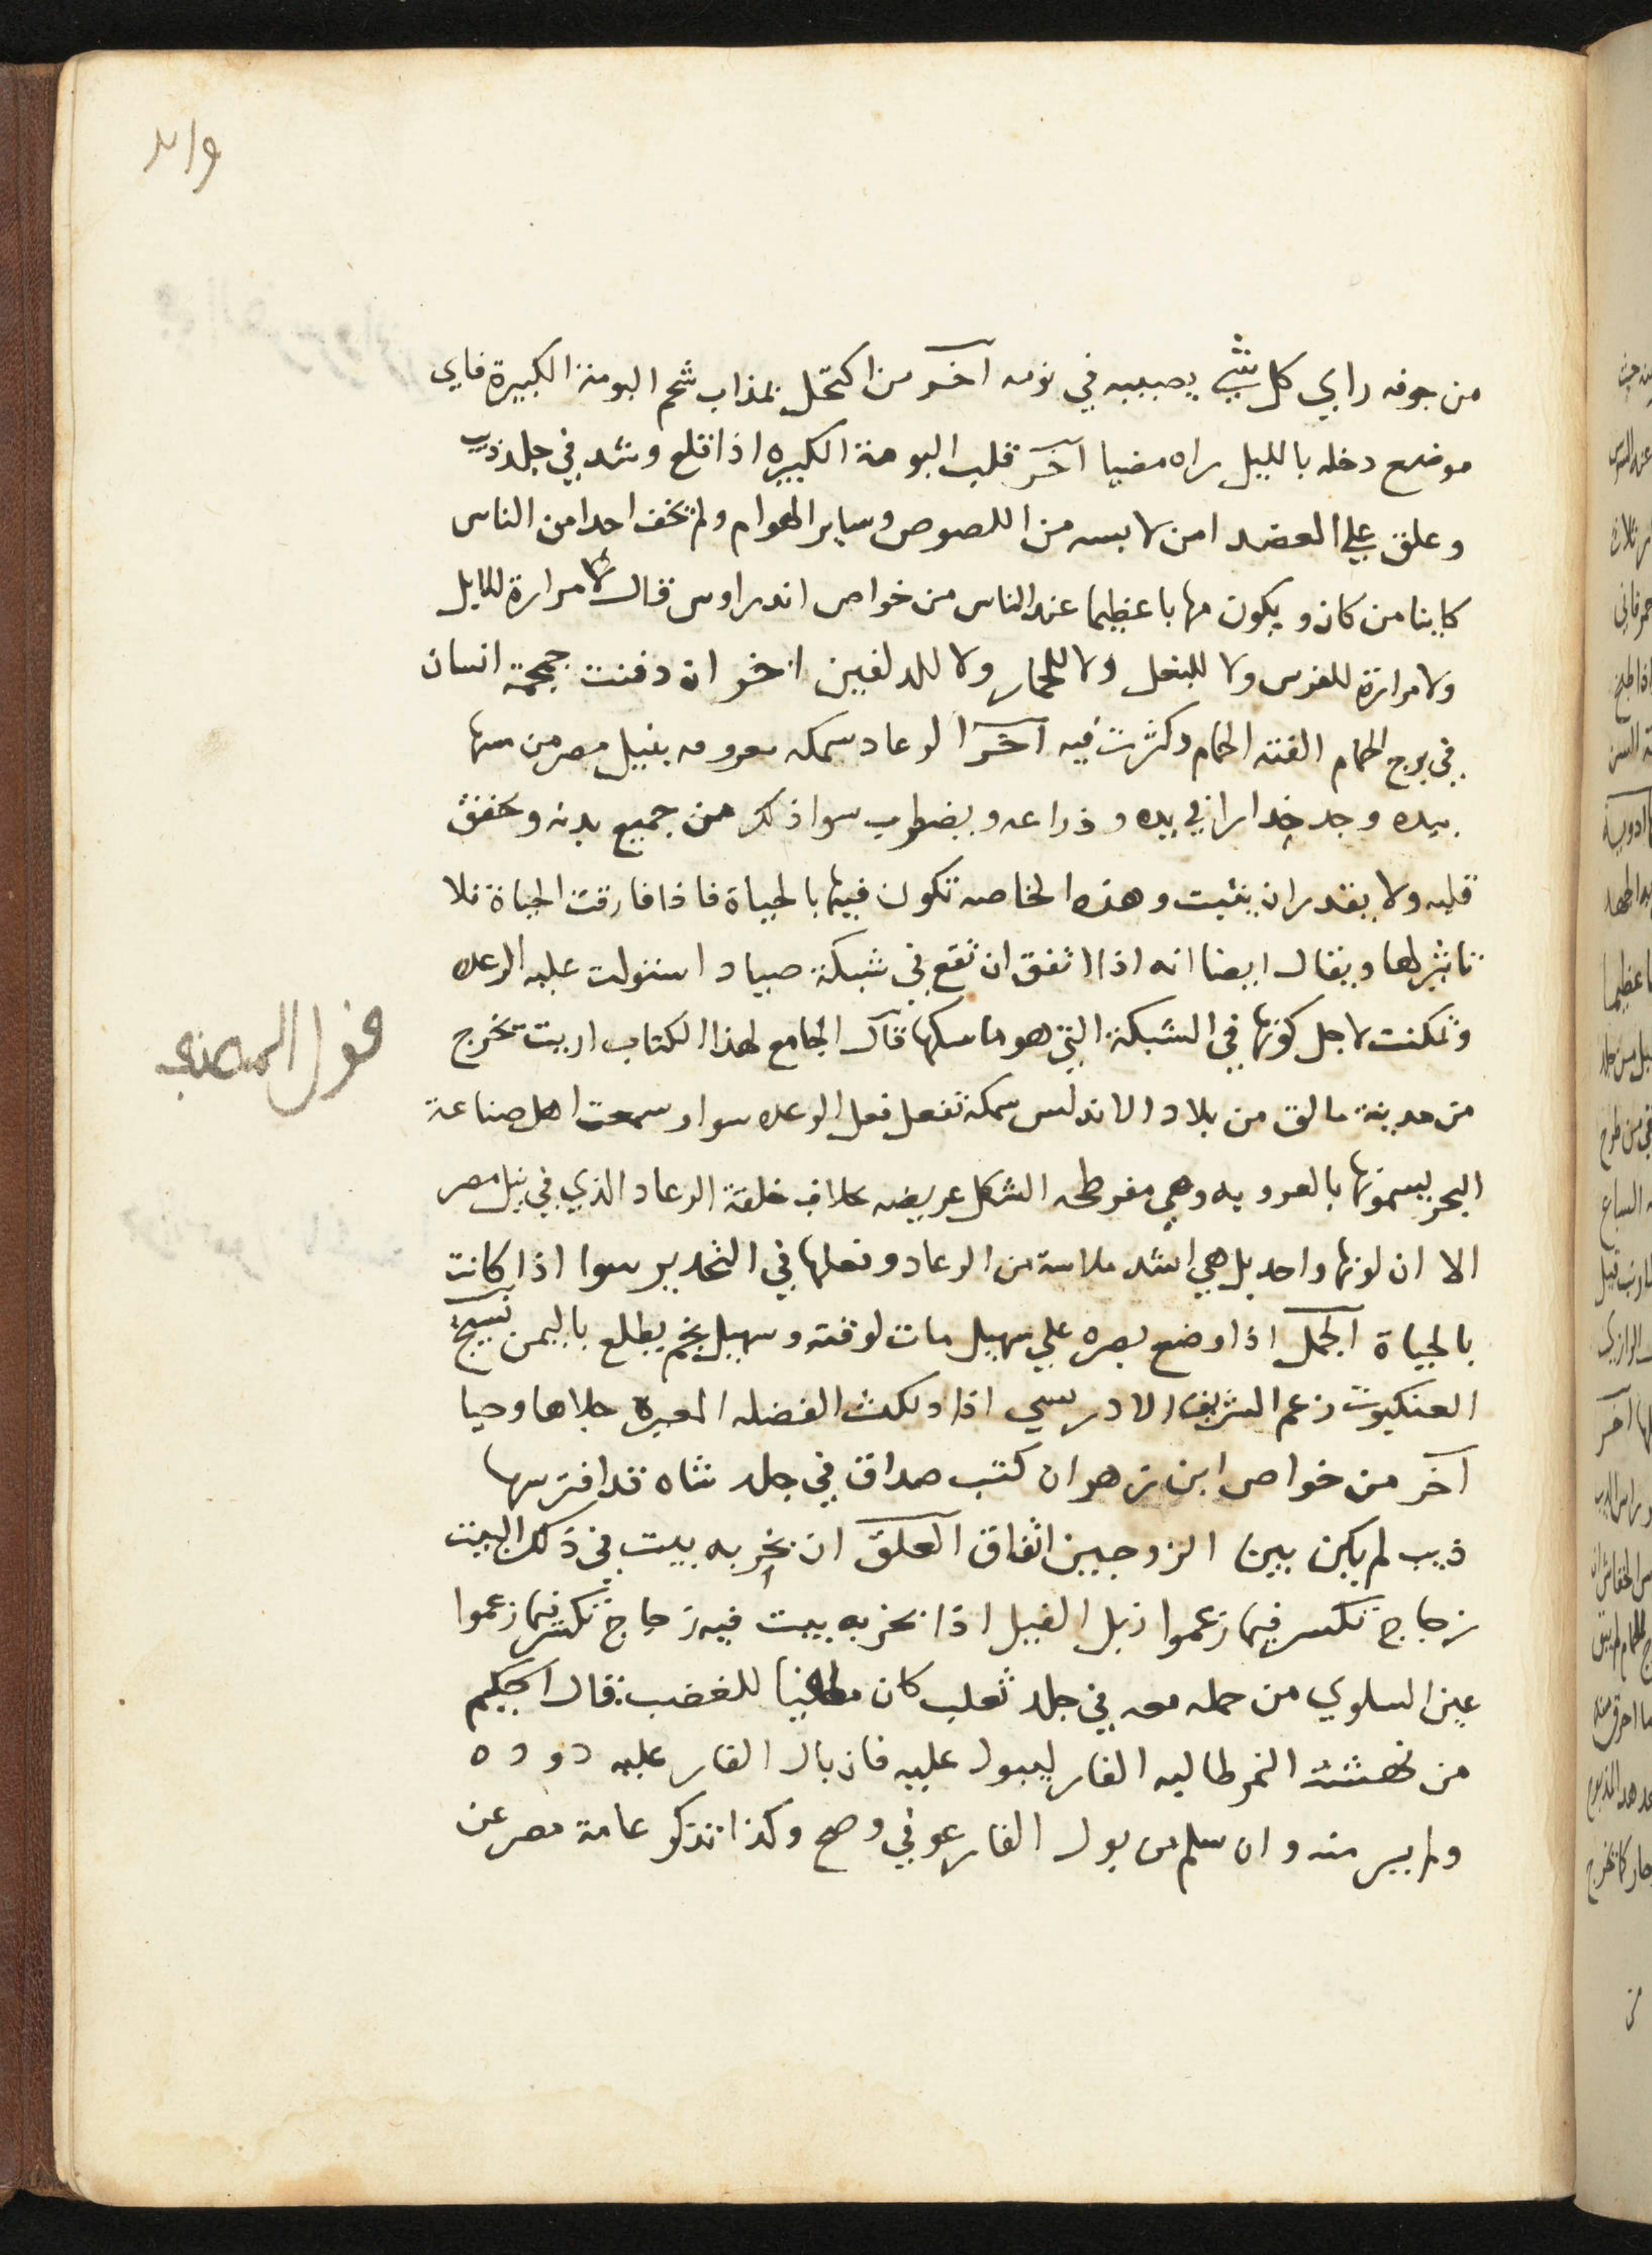 من جوفه راي كل شي يصيبه في نومه آخر من اكتحل بمذاب شحم البومة الكبيرة فاي
موضع دخله بالليل راه مضيا آخر قلب البومة الكبيره اذا قلع وشد في جلد ذيب
وعلق علي العضد امن لابسه من اللصوص وساير الهوام ولم يخف احدا من الناس
كاينا من كان ويكون مهابا عظيما عند الناس من خواص اندراوس قال لا مرارة للايل
ولا مرارة للفرس ولا للبغل ولا للحمار ولا للدلفين اخر ان دفنت جمجمة انسان
في برج الحمام الفته الحمام وكثرت فيه آخر الرعاد سمكه معروفه بنيل مصر من مسها
بيده وجد خدارا في يده وذراعه ويضطرب سوا ذلك من جميع بدنه ويخفق
قلبه ولا يقدر ان يثبت وهذه الخاصه تكون فيها بالحياة فاذا فارقت الحياة فلا
تاثير لها ويقال ايضا انه اذا اتفق ان تقع في شبكة صياد استولت عليه الرعده
وتمكنت لاجل كونها في الشبكة التي هو ماسكها قال الجامع لهذا الكتاب اريت تخرج
قول المصنف
من مدينة مالق من بلاد الاندلس سمكة تفعل فعل الرعده سوا وسمعت اهل صناعة
البحر يسمونها بالعرويه وهي مفرطحه الشكل عريضه بخلاف خلقة الرعاد الذي في نيل مصر
الا ان لونها واحد بل هي اشد ملاسة من الرعاد وفعلها في التخدير سوا اذا كانت
بالحياة الجمل اذا وضع بصره علي سهيل مات لوقته وسهيل نجم يطلع باليمن نسيج
العنكبوت زعم الشريف الادريسي اذا دلكت الفضله المغيرة جلاها وحيا
آخر من خواص ابن زهر ان كتب صداق في جلد شاه قد افترسها
ذيب لم يكن بين الزوجين اتفاق العلق ان بخر به بيت في ذلك البيت
زجاج تكسر فيما زعموا زبل الفيل اذا بخر به بيت فيه زجاج تكسر فيما زعموا
عين السلوي من حمله معه في جلد ثعلب كان مطفيا للغضب قال الحكيم
من نهشته النمر طالبه الفار ليبول عليه فان بال الفار عليه دوده
ولم يبر منه وان سلم من بول الفار عوفي وصح وكذا تذكر عامة مصر عن